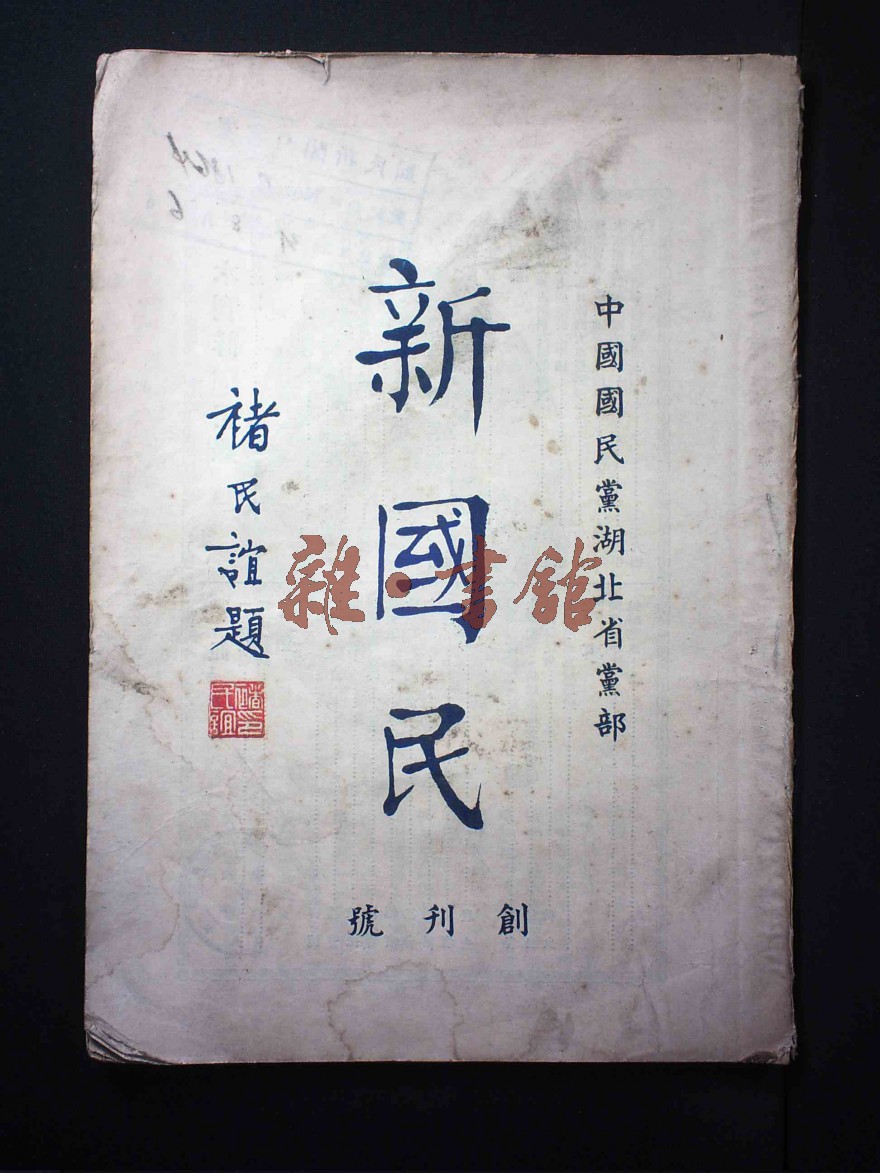 中國國民黨湖北省黨部
新國民
褚民誼題
創刊號
雜·書館